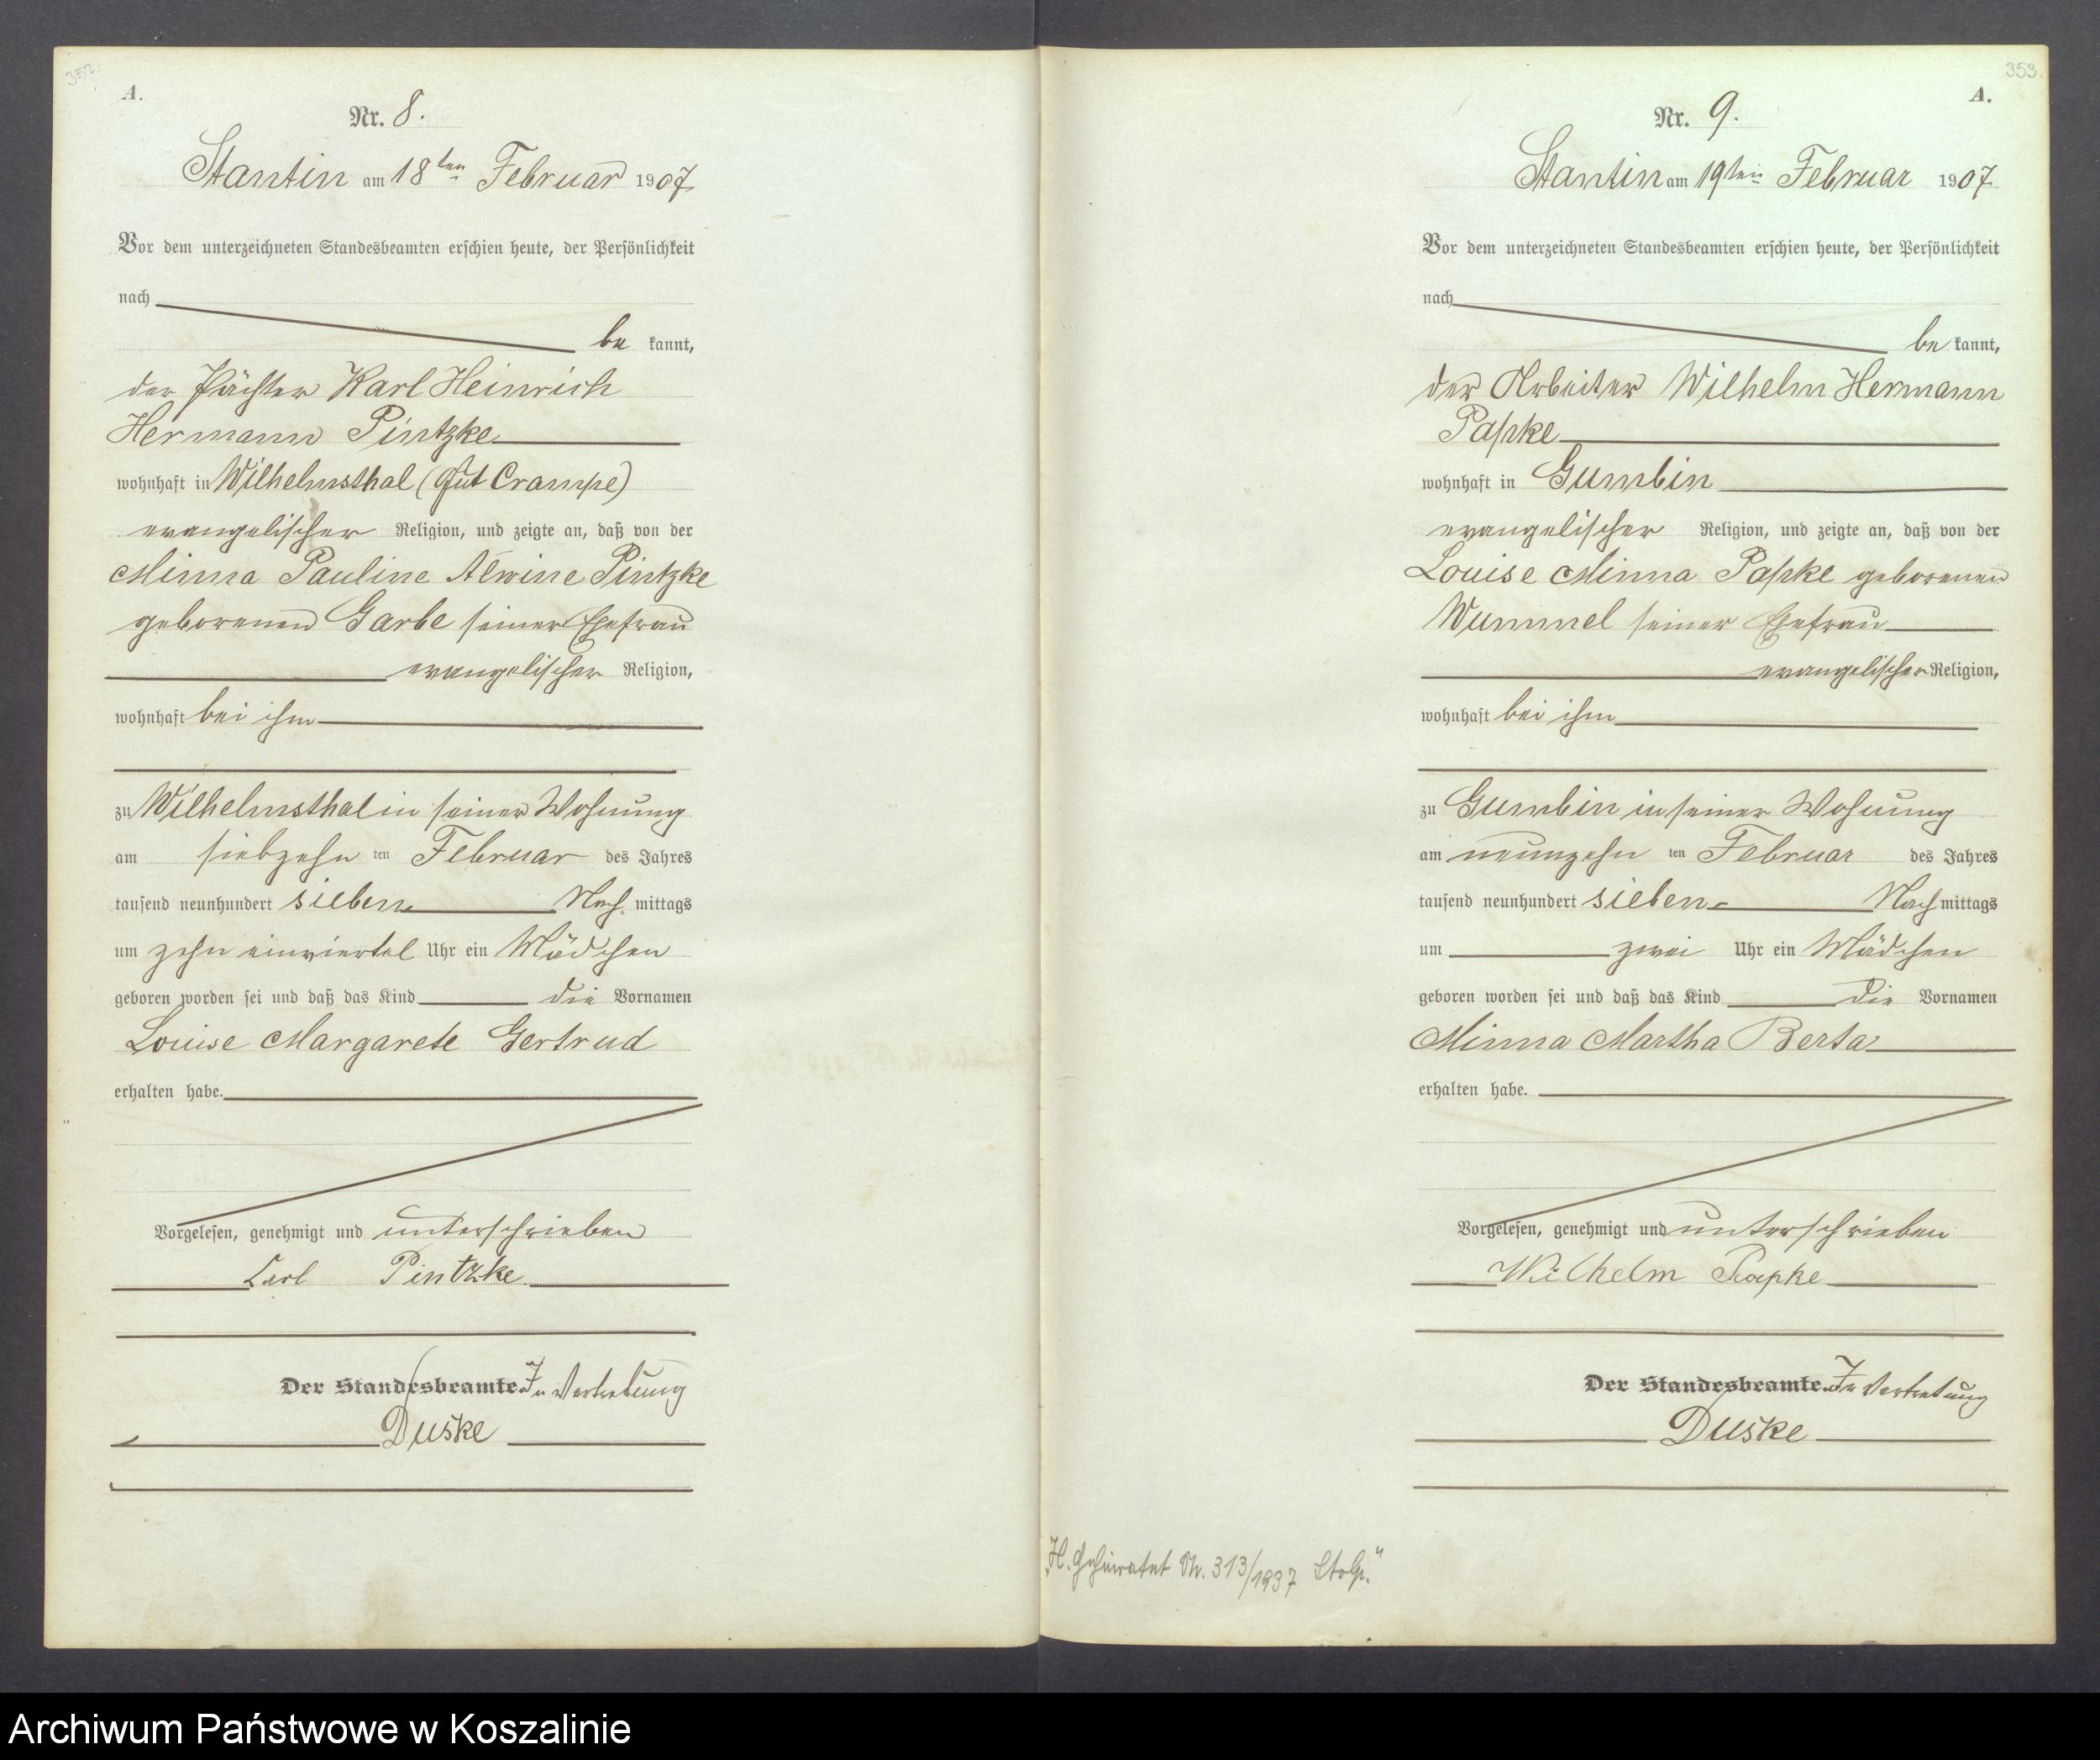 352.
A.
Nr. 8.
Stantin am 18ten Februar 1907
Vor dem unterzeichneten Standesbeamten erschien heute, der Persönlichkeit
nach
be kannt,
der Pächter Karl Heinrich
Hermann Pintzke
wohnhaft in Wilhelmsthal (Gut Crampe)
evangelischer Religion, und zeigte an, daß von der
Minna Pauline Alwine Pintzke
geborenen Garbe seiner Ehefrau
evangelischer Religion,
wohnhaft bei ihm
zu Wilhelmsthal in seiner Wohnung
am siebzehn ten Februar des Jahres
tausend neunhundert sieben Nach mittags
um zehn einviertel Uhr ein Mädchen
geboren worden sei und daß das Kind die Vornamen
Louise Margarete Gertrud
erhalten habe.
Vorgelesen, genehmigt und unterschrieben
Carl Pintzke
Der Standesbeamte. In Vertretung
Duske
353.
A.
Nr. 9.
Stantin am 19ten Februar 1907.
Vor dem unterzeichneten Standesbeamten erschien heute, der Persönlichkeit
nach
be kannt,
der Arbeiter Wilhelm Hermann
Papke
wohnhaft in Gumbin
evangelischer Religion, und zeigte an, daß von der
Louise Minna Papke geborenen
Wummel seiner Ehefrau
evangelischer Religion,
wohnhaft bei ihm
zu Gumbin in seiner Wohnung
am neunzehn ten Februar des Jahres
tausend neunhundert sieben Nach mittags
um zwei Uhr ein Mädchen
geboren worden sei und daß das Kind die Vornamen
Minna Martha Berta
erhalten habe.
Vorgelesen, genehmigt und unterschrieben
Wilhelm Papke
Der Standesbeamte. In Vertretung
Duske
Geheiratet Nr. 313/1937
Archiwum Państwowe w Koszalinie